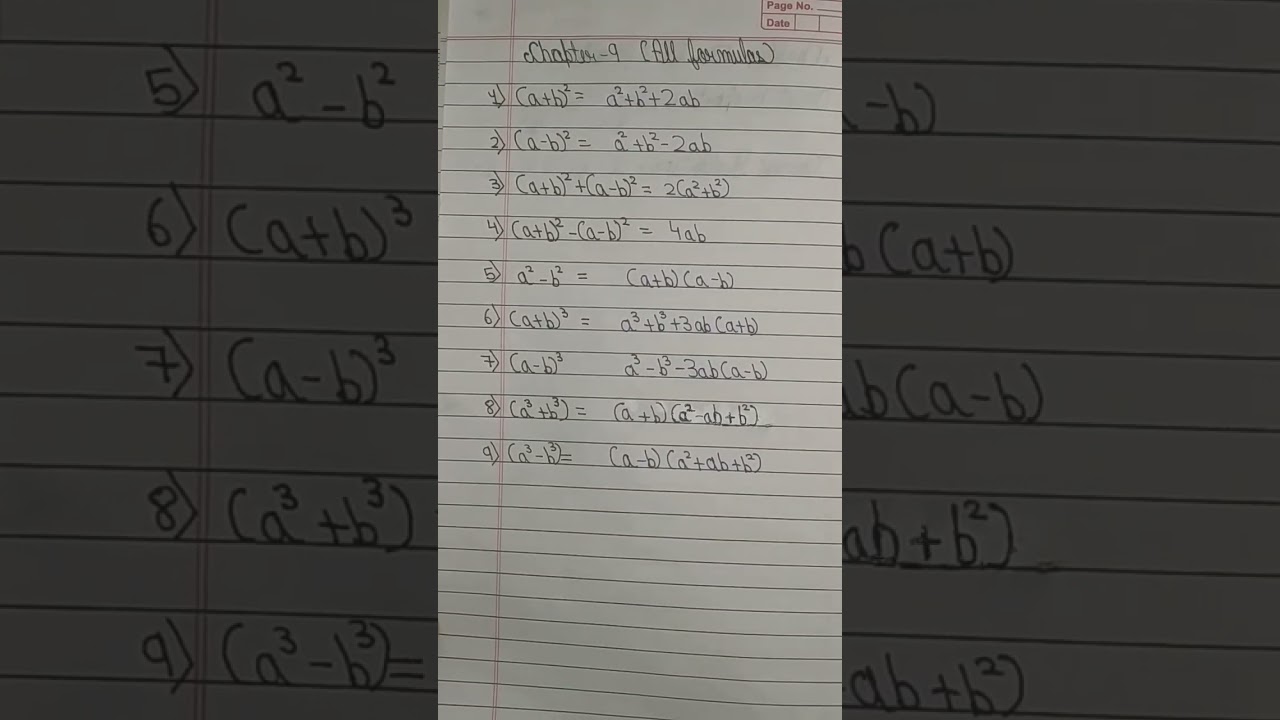 Page No.
Date
Chapter-9 (All formulas)
1) (a+b)² = a²+b²+2ab
2) (a-b)² = a²+b²-2ab
3) (a+b)²+(a-b)² = 2(a²+b²)
4) (a+b)²-(a-b)² = 4ab
5) a²-b² = (a+b)(a-b)
6) (a+b)³ = a³+b³+3ab(a+b)
7) (a-b)³ a³-b³-3ab(a-b)
8) (a³+b³) = (a+b)(a²-ab+b²)
9) (a³-b³)= (a-b)(a²+ab+b²)
5) a²-b² -b)
6) (a+b)³ b(a+b)
7) (a-b)³ ab(a-b)
8) (a³+b³) ab+b²)
9) (a³-b³)= ab+b²)